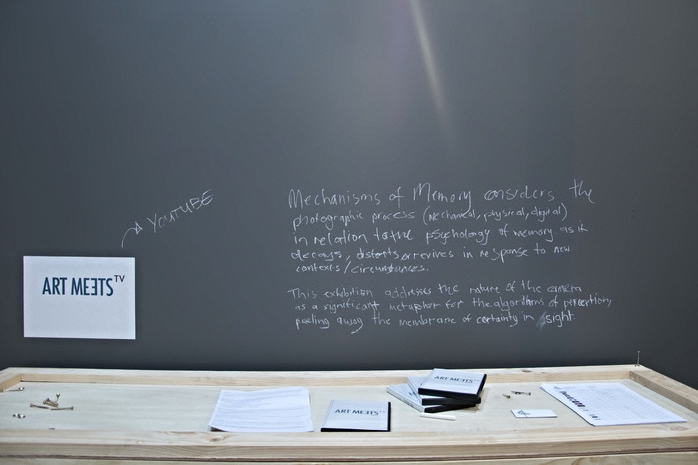 YOUTUBE
ART MEETS TV
Mechanisms of Memory considers the
photographic process (mechanical, physical, digital)
in relation to the psychology of memory as it
decays, distorts or revives in response to new
contexts/circumstances.
This exhibition addresses the nature of the camera
as a significant metaphor for the algorithms of perception,
peeling away the membrane of certainty in sight.
ART MEETS TV
ART MEETS TV